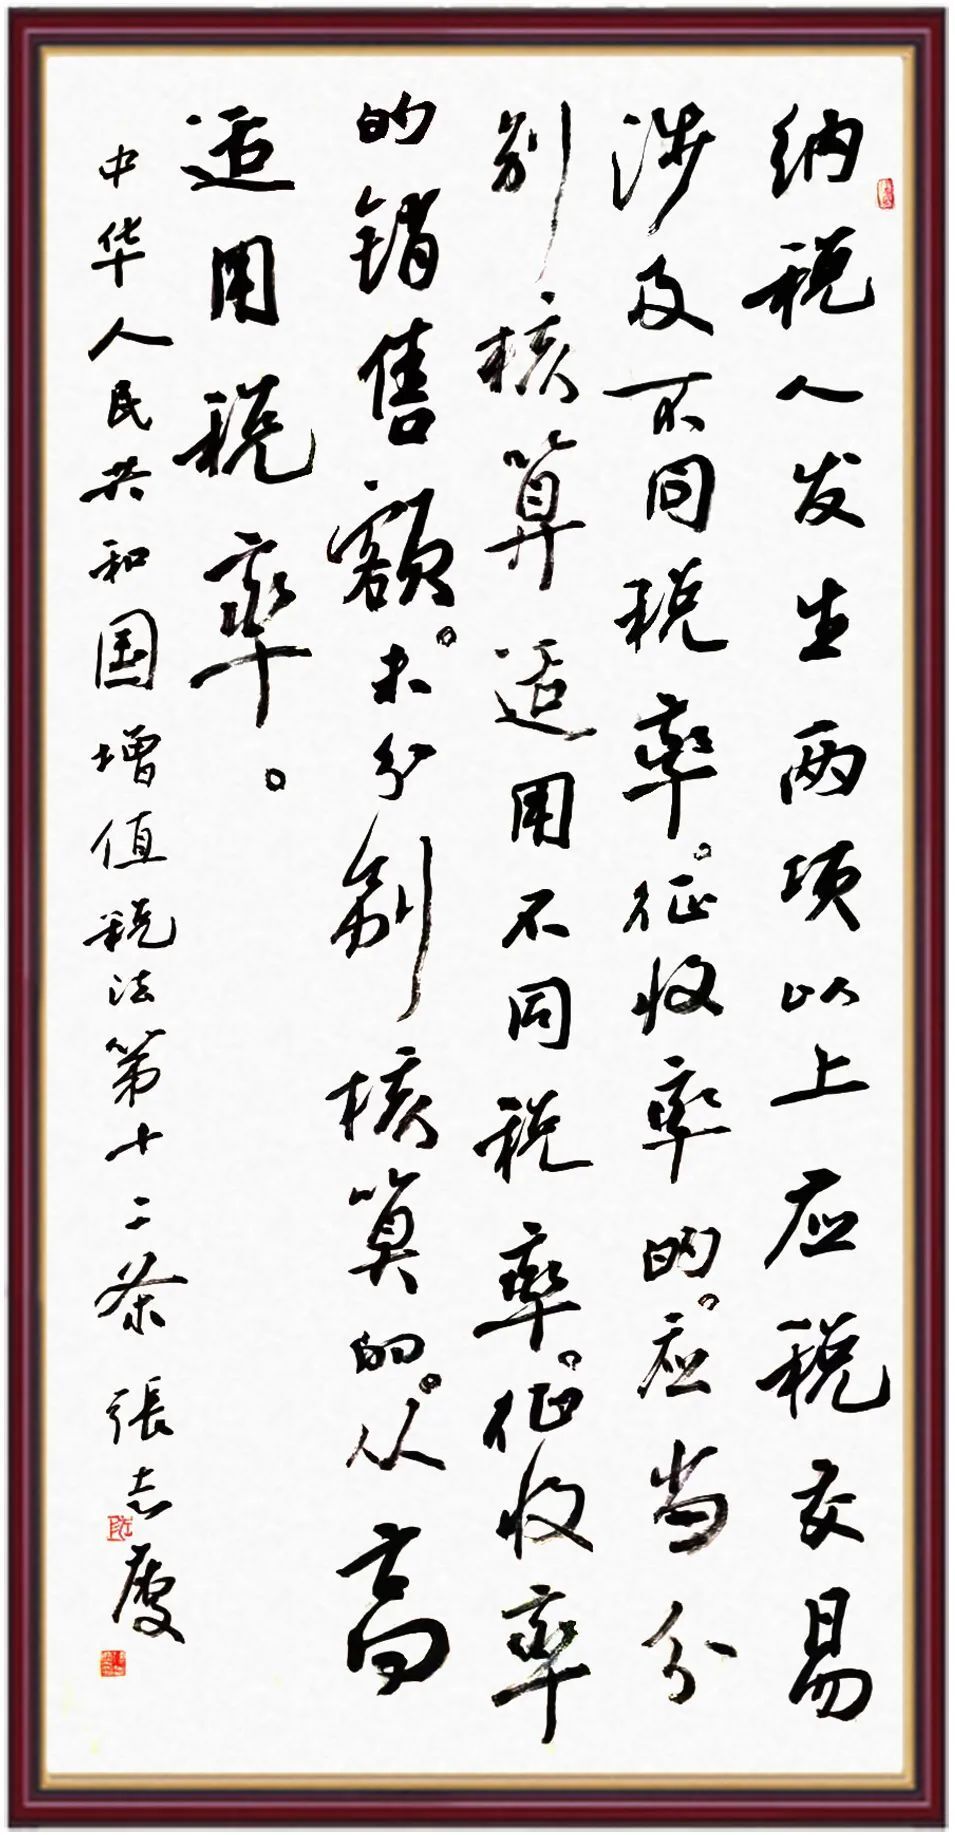 纳税人发生两项以上应税交易
涉及不同税率。征收率的。应当分
别核算适用不同税率。征收率
的销售额。未分别核算的。从高
适用税率。
中华人民共和国增值税法第十二条 張志慶